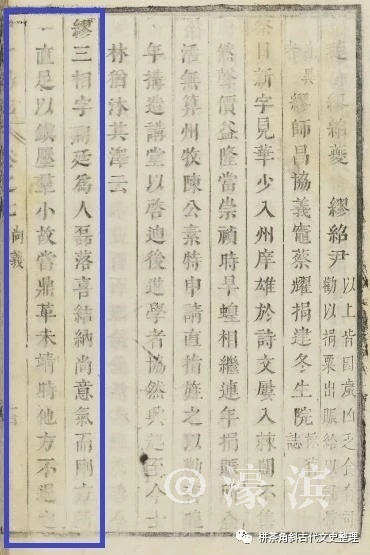 繆紹夔 繆紹尹 以上皆因歲凶乏食
勸以捐粟出賑給以
繆師昌協義竈蔡耀捐建冬生院 志
蔡日新字見華少入州庠雄於詩文屢入棘闈不
然聲價益隆當崇禎時旱蝗相繼連年捐賑
活無算州牧陳公素特申請直指旌之以
年搆造講堂以啓迪後進學者協然興起至今士
林猶沐其澤云
繆三相字廷爲人磊落喜結納尚意氣而剛方
直足以鎮壓羣小故當鼎革未靖時他方不
尚義
@濠滨
拼茶角斜古代文史整理